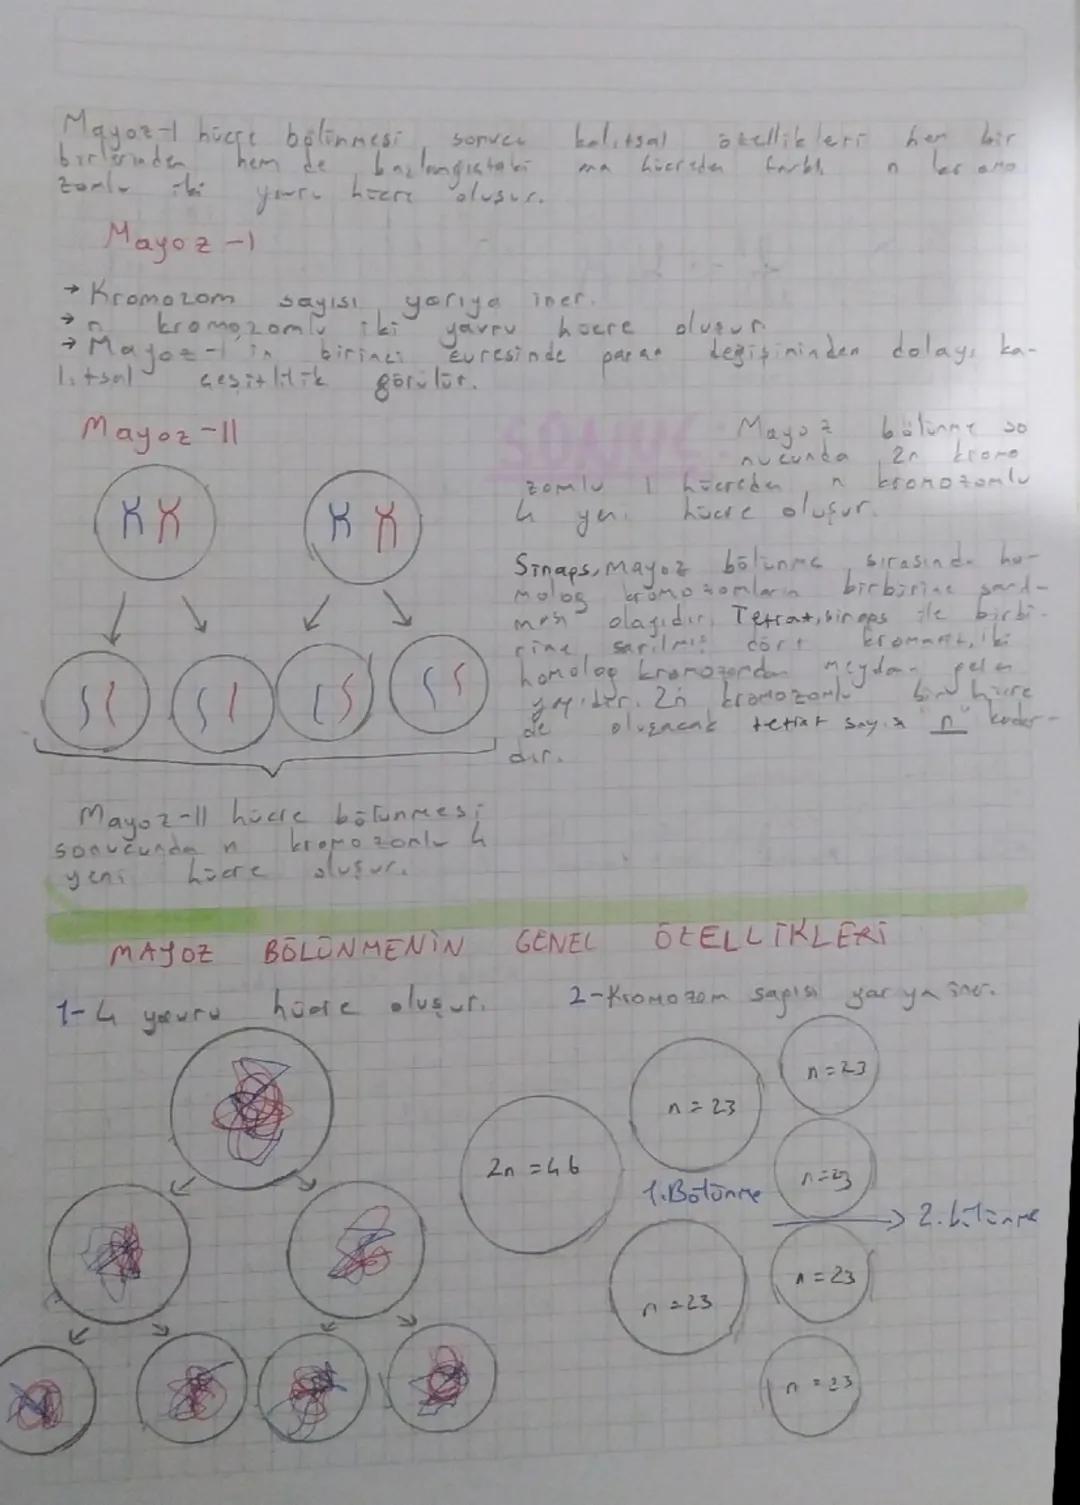 Mayoz-I hücre bölünmesi sonucu kalıtsal özellikleri hem bir
birlerinden hem de başlangıçtaki ana hücreden farklı n kromo
zomlu iki yavru hücre oluşur.
Mayoz-I
→ Kromozom sayısı yarıya iner.
→ n kromozomlu iki yavru hücre oluşur
→ Mayoz-I'in birinci evresinde parça değişiminden dolayı ka-
lıtsal çeşitlilik görülür.
Mayoz-II
SONUÇ: Mayoz bölünme so
nucunda 2n kromo
zomlu 1 hücreden n kromozomlu
4 yeni hücre oluşur.
Sinaps, mayoz bölünme sırasında ho-
molog kromozomların birbirine sarıl-
ması olayıdır. Tetrat, sinaps ile birbi-
rine sarılmış dört kromatit, iki
homolog kromozomdan meydan gelen
yapıdır. 2n kromozomlu bir hücre
de oluşacak tetrat sayısı "n" kadar-
dır.
Mayoz-II hücre bölünmesi
sonucunda n kromozomlu 4
yeni hücre oluşur.
MAYOZ BÖLÜNMENİN GENEL ÖZELLİKLERİ
1-4 yavru hücre oluşur.
2-Kromozom sayısı yarıya iner.
2n = 46
n = 23
n = 23
1. Bölünme
n = 23
n = 23
→ 2. bölünme
n = 23
n = 23